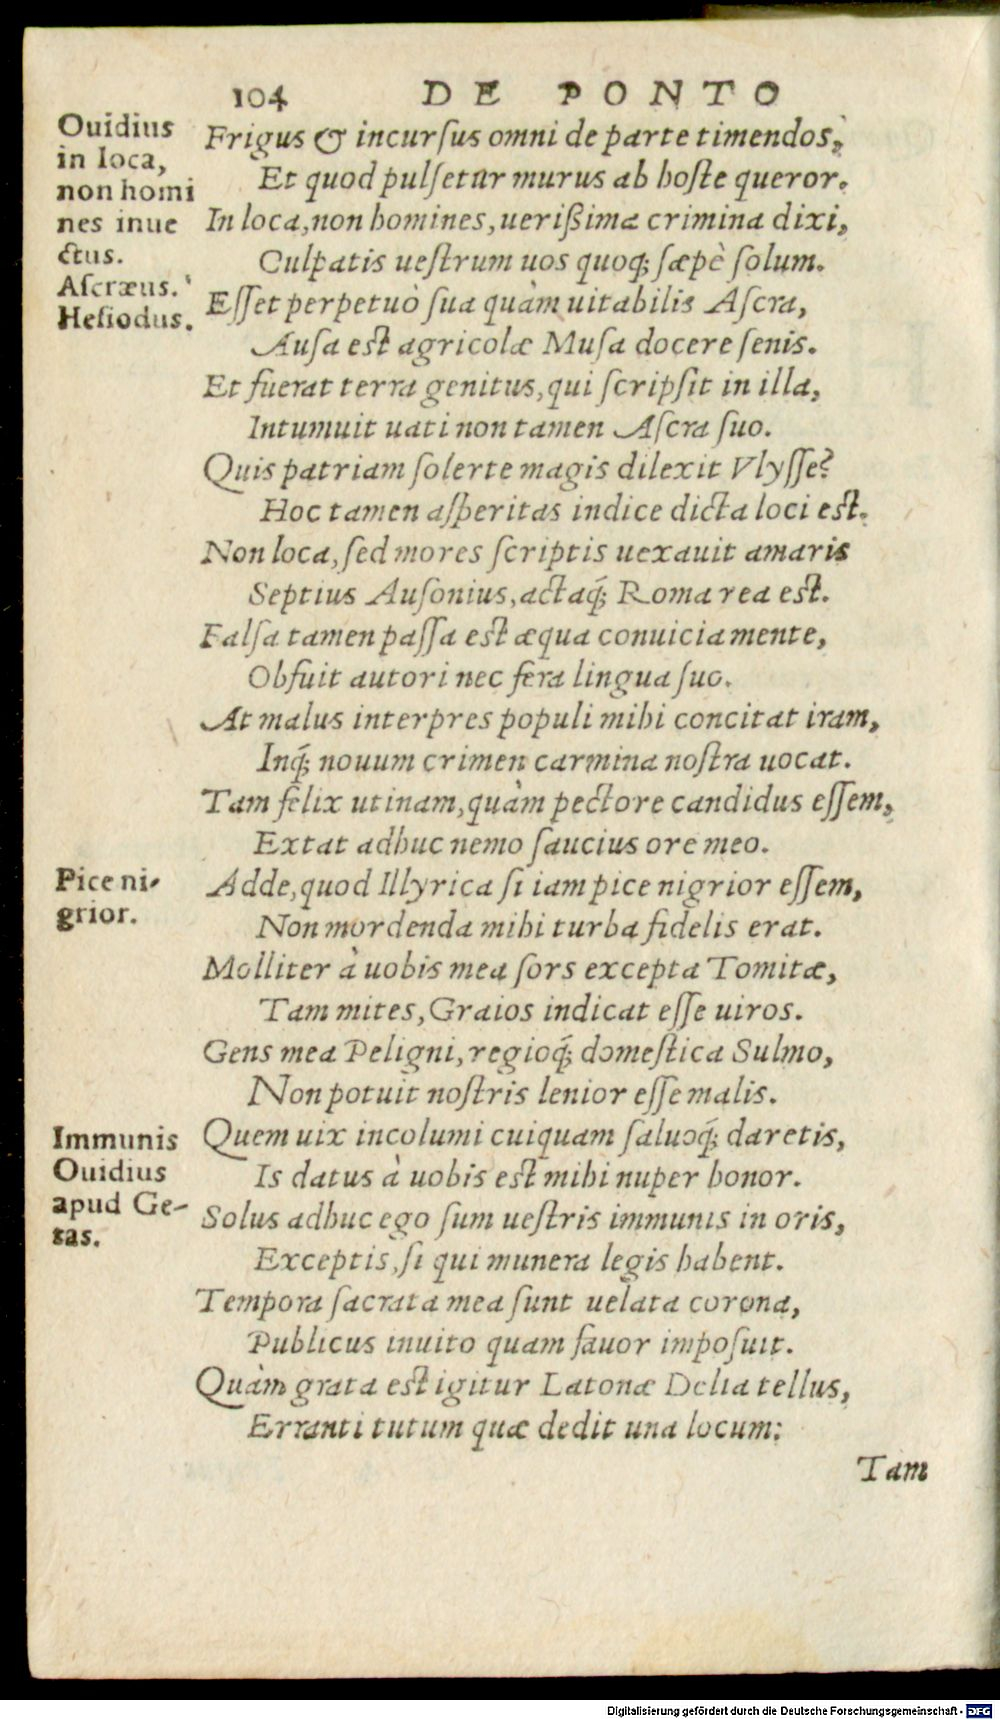 104 DE PONTO
Ouidius
in loca,
non homi
nes inue
ctus.
Aſcræus.
Heſiodus.
Frigus & incurſus omni de parte timendos,
Et quod pulſetur murus ab hoſte queror.
In loca, non homines, uerißima crimina dixi,
Culpatis ueſtrum uos quoq; ſæpè ſolum.
Eſſet perpetuò ſua quàm uitabilis Aſcra,
Auſa est agricolæ Muſa docere ſenis.
Et fuerat terra genitus, qui ſcripſit in illa,
Intumuit uati non tamen Aſcra ſuo.
Quis patriam ſolerte magis dilexit Vlyſſe?
Hoc tamen aſperitas indice dicta loci est.
Non loca, ſed mores ſcriptis uexauit amaris
Septius Auſonius, actaq́; Roma rea est.
Falſa tamen paſſa est æqua conuicia mente,
Obfuit autori nec fera lingua ſuo.
At malus interpres populi mihi concitat iram,
Inq́; nouum crimen carmina noſtra uocat.
Tam felix utinam, quàm pectore candidus eſſem,
Extat adhuc nemo ſaucius ore meo.
Pice ni-
grior.
Adde, quod Illyrica ſi iam pice nigrior eſſem,
Non mordenda mihi turba fidelis erat.
Molliter à uobis mea ſors excepta Tomitæ,
Tam mites, Graios indicat eſſe uiros.
Gens mea Peligni, regioq́; domeſtica Sulmo,
Non potuit noſtris lenior eſſe malis.
Immunis
Ouidius
apud Ge-
tas.
Quem uix incolumi cuiquam ſaluoq́; daretis,
Is datus à uobis est mihi nuper honor.
Solus adhuc ego ſum ueſtris immunis in oris,
Exceptis, ſi qui munera legis habent.
Tempora ſacrata mea ſunt uelata corona,
Publicus inuito quam fauor impoſuit.
Quàm grata est igitur Latonæ Delia tellus,
Erranti tutum quæ dedit una locum:
Tam
Digitalisierung gefördert durch die Deutsche Forschungsgemeinschaft - DFG